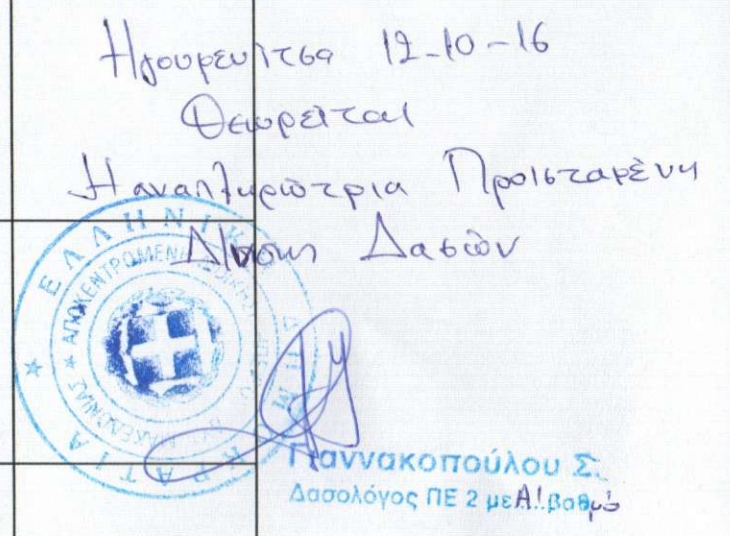 Ηγουμενίτσα 12-10-16
Θεωρείται
Η αναπληρώτρια Προϊσταμένη
Δ/νσης Δασών
ΕΛΛΗΝΙΚΗ ΔΗΜΟΚΡΑΤΙΑ
ΑΠΟΚΕΝΤΡΩΜΕΝΗ ΜΑΚΕΔΟΝΙΑΣ
Γιαννακοπούλου Σ.
Δασολόγος ΠΕ 2 με Α'. βαθμό